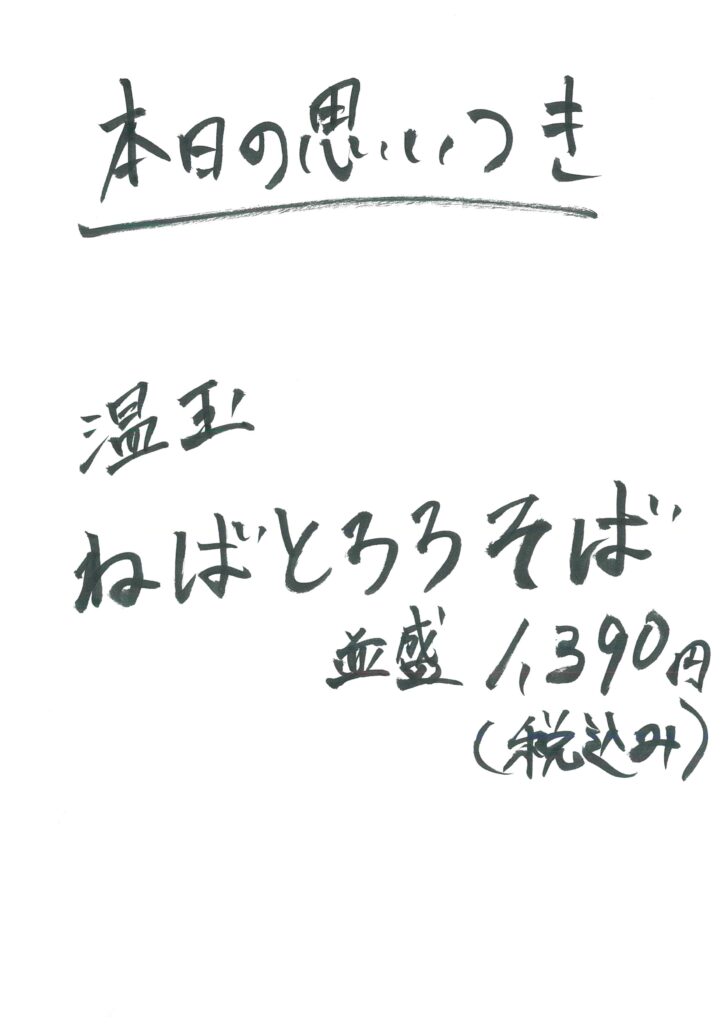 本日の思いつき
温玉
ねばとろろそば
並盛 1,390円
(税込み)